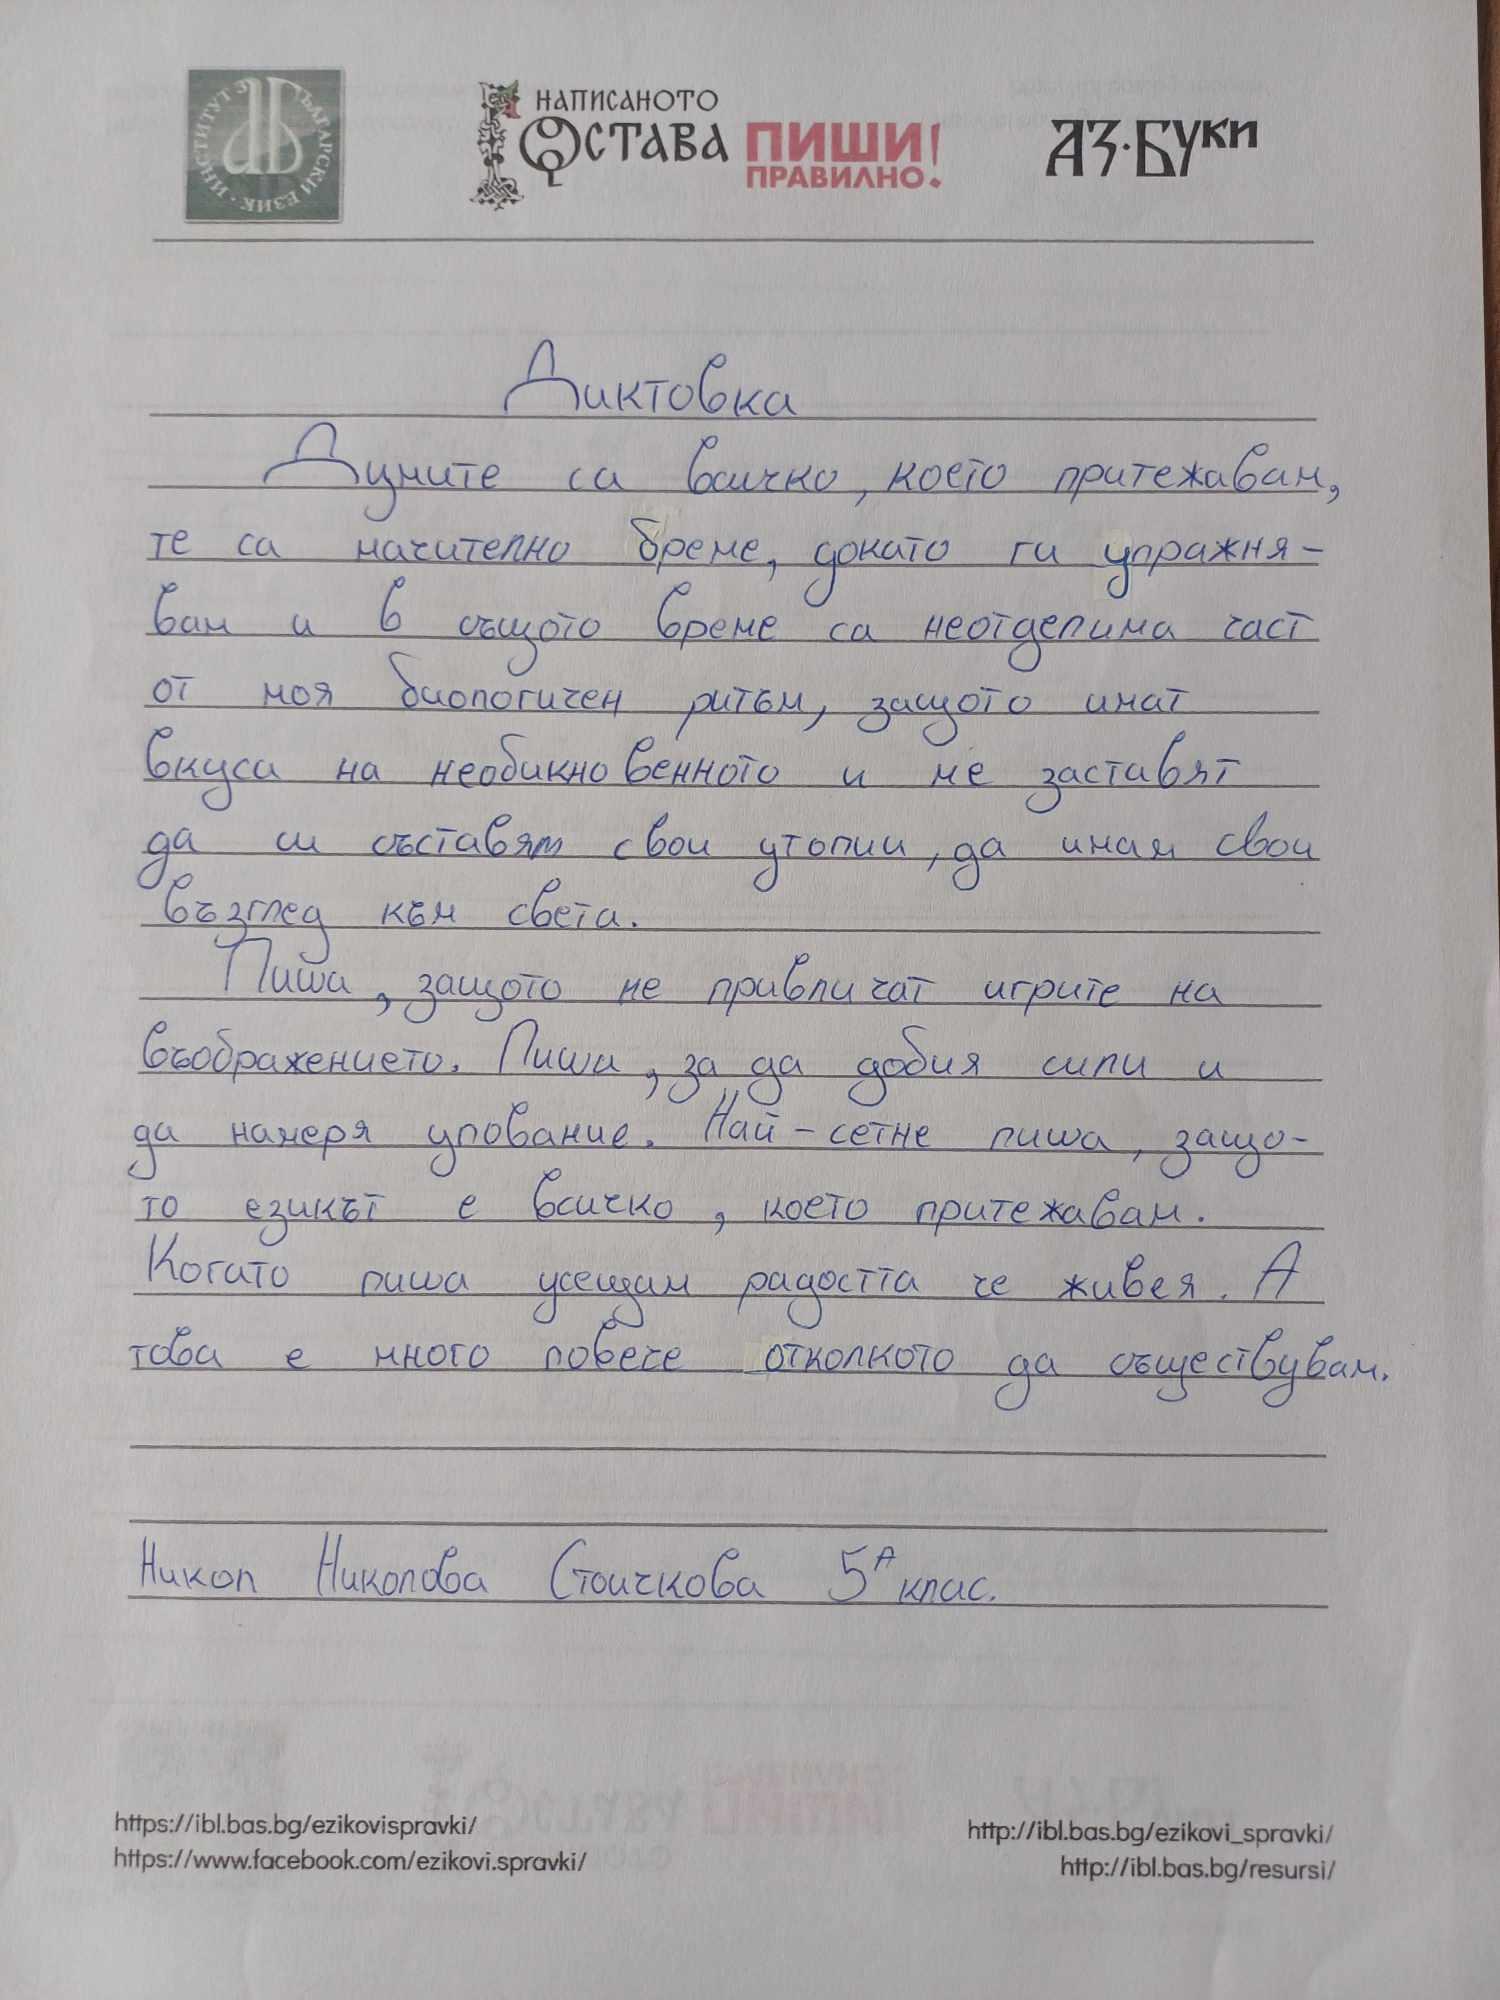 ИНСТИТУТ ЗА БЪЛГАРСКИ ЕЗИК
НАПИСАНОТО
ОСТАВА
ПИШИ
ПРАВИЛНО!
АЗ·БУКИ
Диктовка
Думите са всичко, което притежавам,
те са мачително бреме, докато ги упражня-
вам и в същото време са неотделима част
от моя биологичен ритъм, защото имат
вкуса на необикновенното и ме заставят
да си съставям свои утопии, да имам свои
възглед към света.
Пиша, защото ме привличат игрите на
въображението. Пиша, за да добия сили и
да намеря упование. Най-сетне пиша, защо-
то езикът е всичко, което притежавам.
Когато пиша усещам радостта че живея. А
това е много повече отколкото да съществувам.
Никол Николова Стоичкова 5А клас.
https://ibl.bas.bg/ezikovispravki/
https://www.facebook.com/ezikovi.spravki/
http://ibl.bas.bg/ezikovi_spravki/
http://ibl.bas.bg/resursi/